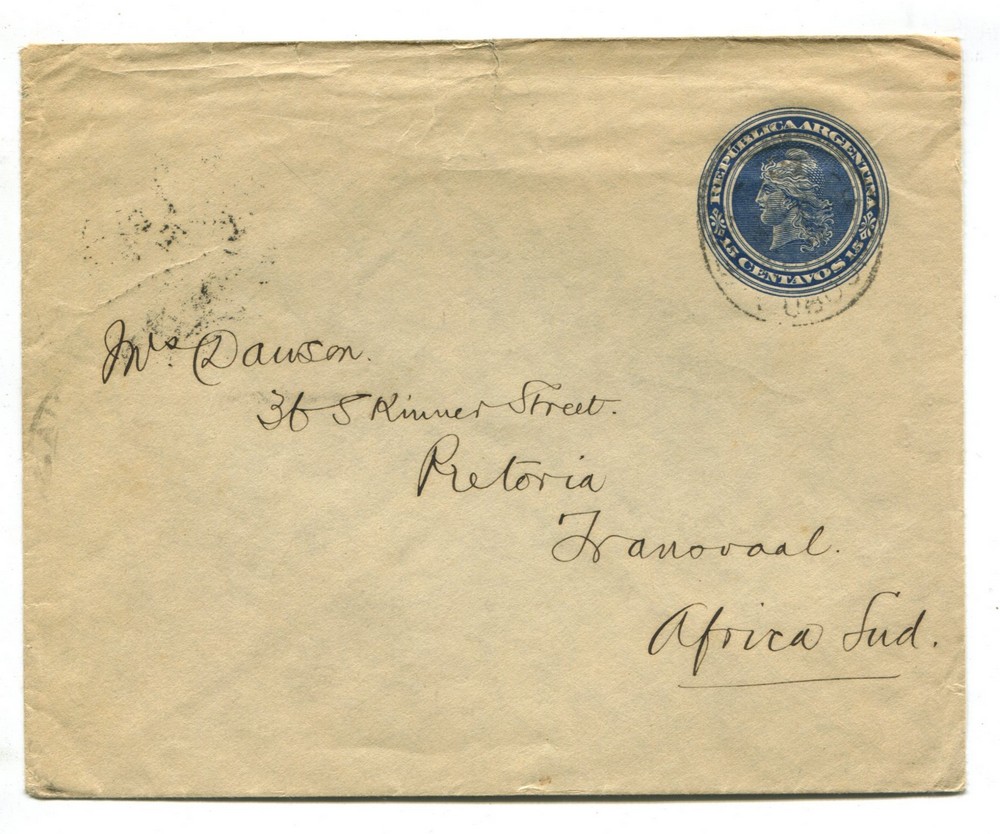 REPÚBLICA ARGENTINA
15 CENTAVOS 15
Mrs. Dawson.
36 Skinner Street.
Pretoria
Transvaal.
Africa Sud.